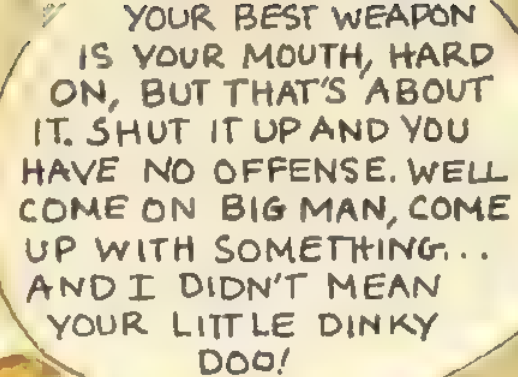 YOUR BEST WEAPON
IS YOUR MOUTH, HARD
ON, BUT THAT'S ABOUT
IT. SHUT IT UP AND YOU
HAVE NO OFFENSE. WELL
COME ON BIG MAN, COME
UP WITH SOMETHING...
AND I DIDN'T MEAN
YOUR LITTLE DINKY
DOO!